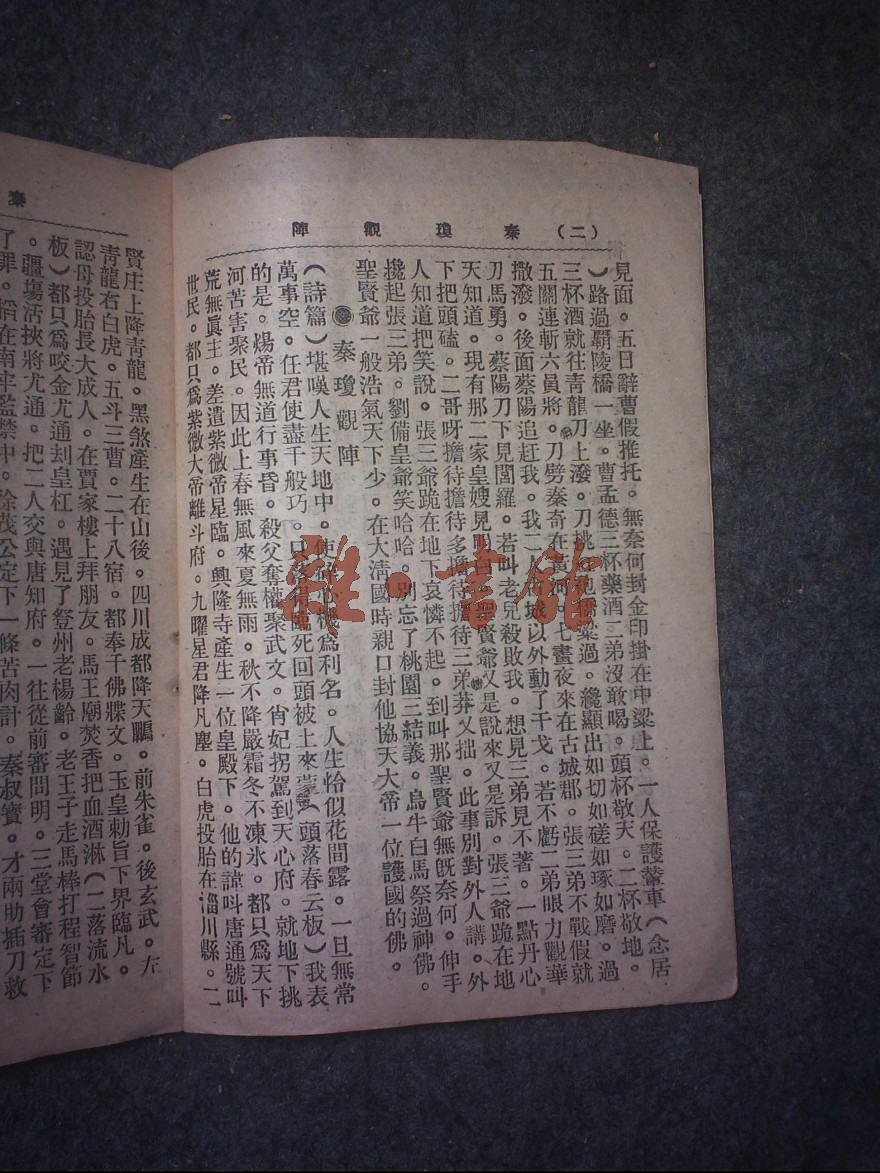 (二) 秦瓊觀陣
見面。五日辭曹假推托。無奈何封金印掛在中梁上。一人保護輦車(念居
)路過覇陵橋一坐。曹孟德三杯藥酒二弟沒敢喝。頭杯敬天。二杯敬地。
三杯酒就往靑龍刀上潑。刀桃紅袍橋梁過。纔顯出如切如磋如琢如磨。過
五關連斬六員將。刀劈秦奇在黃河。七晝夜來在古城郡。張三弟不戰假就
撒潑。後面蔡陽追赶我。我二人城以外動了干戈。若不虧二弟眼力觀華
刀馬勇。蔡陽刀下見閻羅。若叫老兒殺敗我。想見三弟見不著。一點丹心
天知道。現有那二家皇嫂見明白。聖賢爺又是說來又是訴。張三爺跪在地
下把頭磕。二哥呀擔待擔待多擔待擔待三弟莽又拙。此事別對外人講。外
人知道把笑說。張三爺跪在地下哀憐不起。到叫那聖賢爺無旣奈何。伸手
攙起張三弟。劉備皇爺笑哈哈。別忘了桃園三結義。烏牛白馬祭過神佛。
聖賢爺一般浩氣天下少。在大淸國時親口封他協天大帝一位護國的佛。
秦瓊觀陣
(詩篇)堪嘆人生天地中。使碎心機爲利名。人生恰似花間露。一旦無常
萬事空。任君使盡千般巧。只落得臨死回頭被土來蒙(頭落春云板)我表
的是。煬帝無道行事昏。殺父奪權聚武文。肖妃拐駕到天心府。就地下挑
河苦害聚民。因此上春無風來夏無雨。秋不降嚴霜冬不凍氷。都只爲天下
荒無眞主。差遣紫微帝星臨。興隆寺產生一位皇殿下。他的諱叫唐通號叫
世民。都只爲紫微大帝離斗府。九曜星君降凡塵。白虎投胎在淄川縣。二
秦
賢庄上降靑龍。黑煞產生在山後。四川成都降天鵬。前朱雀。後玄武。左
靑龍右白虎。五斗三曹。二十八宿。都奉千佛牒文。玉皇勅旨下界臨凡。
認母投胎長大成人。在賈家樓上拜朋友。馬王廟焚香把血酒淋(二落流水
板)都只爲咬金尤通刦皇杠。遇見了登州老楊齡。老王子走馬棒打程智節
。疆塲活挾將尤通。把二人交與唐知府。一往從前審問明。三堂會審定下
了罪。掐在南牢監禁中。徐茂公定下一條苦肉計。秦叔寶。才兩肋插刀救
雜·書館